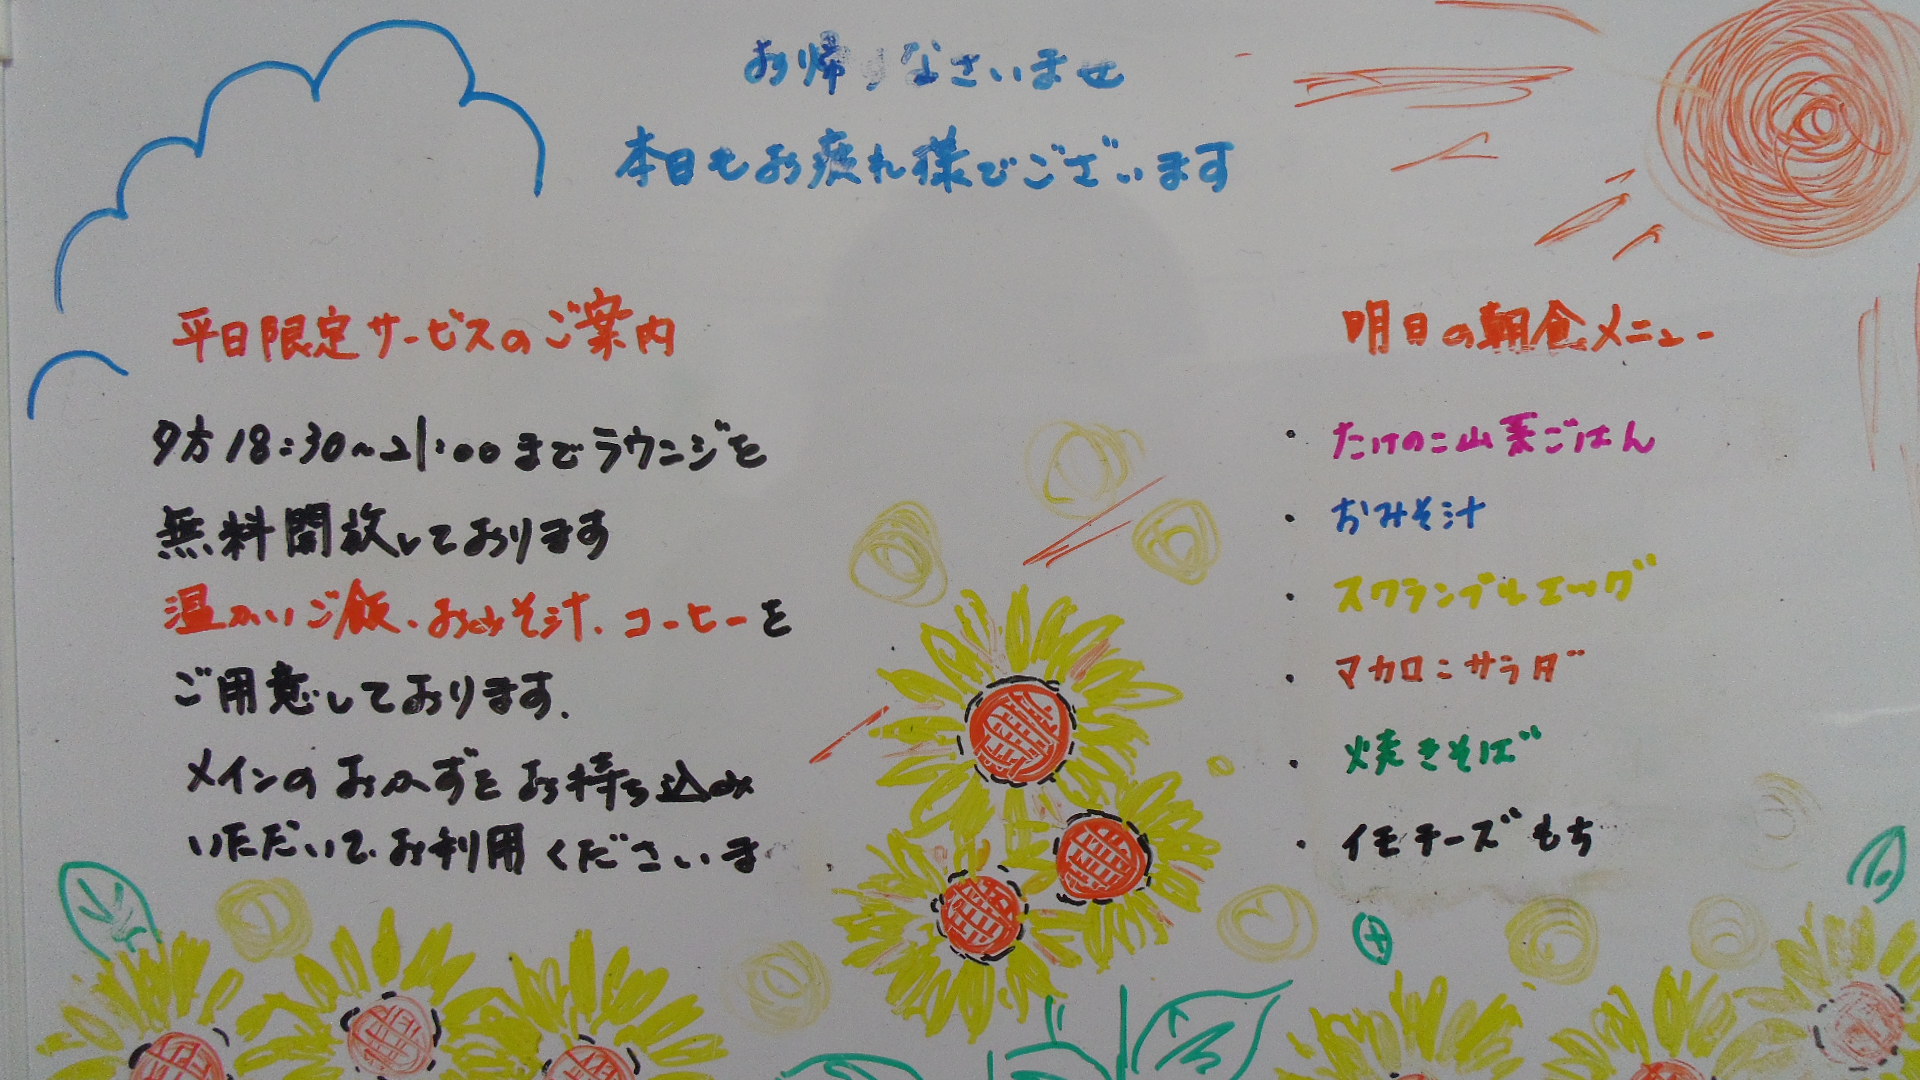 お帰りなさいませ
本日もお疲れ様でございます
平日限定サービスのご案内
夕方18:30~21:00までラウンジを
無料開放しております
温かいご飯、おみそ汁、コーヒーを
ご用意しております.
メインのおかずをお持ち込み
いただいて、お利用くださいま
明日の朝食メニュー
・たけのこ山菜ごはん
・おみそ汁
・スクランブルエッグ
・マカロニサラダ
・焼きそば
・イモチーズもち